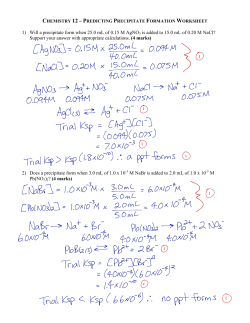 CHEMISTRY 12 – PREDICTING PRECIPITATE FORMATION WORKSHEET
1) Will a precipitate form when 25.0 mL of 0.15 M AgNO₃ is added to 15.0 mL of 0.20 M NaCl?
Support your answer with appropriate calculations. (4 marks)
[AgNO₃] = 0.15M × 25.0mL / 40.0mL = 0.094M
[NaCl] = 0.20M × 15.0mL / 40.0mL = 0.075M
①
AgNO₃ → Ag⁺ + NO₃⁻ NaCl → Na⁺ + Cl⁻
0.094M 0.094M 0.075M 0.075M
AgCl(s) ⇌ Ag⁺ + Cl⁻ ①
Trial Ksp = [Ag⁺][Cl⁻]
= (0.094)(0.075)
= 7.0×10⁻³ ①
Trial Ksp > Ksp (1.8×10⁻¹⁰) ∴ a ppt forms ①
2) Does a precipitate form when 3.0 mL of 1.0 x 10⁻⁵ M NaBr is added to 2.0 mL of 1.0 x 10⁻³ M
Pb(NO₃)₂? (4 marks)
[NaBr] = 1.0×10⁻⁵M × 3.0mL / 5.0mL = 6.0×10⁻⁶M
[Pb(NO₃)₂] = 1.0×10⁻³M × 2.0mL / 5.0mL = 4.0×10⁻⁴M
①
NaBr → Na⁺ + Br⁻ Pb(NO₃)₂ → Pb²⁺ + 2NO₃⁻
6.0×10⁻⁶M 6.0×10⁻⁶M 4.0×10⁻⁴M 4.0×10⁻⁴M
PbBr₂(s) ⇌ Pb²⁺ + 2Br⁻ ①
Trial Ksp = [Pb²⁺][Br⁻]²
= (4.0×10⁻⁴)(6.0×10⁻⁶)²
= 1.4×10⁻¹⁴ ①
Trial Ksp < Ksp (6.6×10⁻⁶) ∴ no ppt forms ①